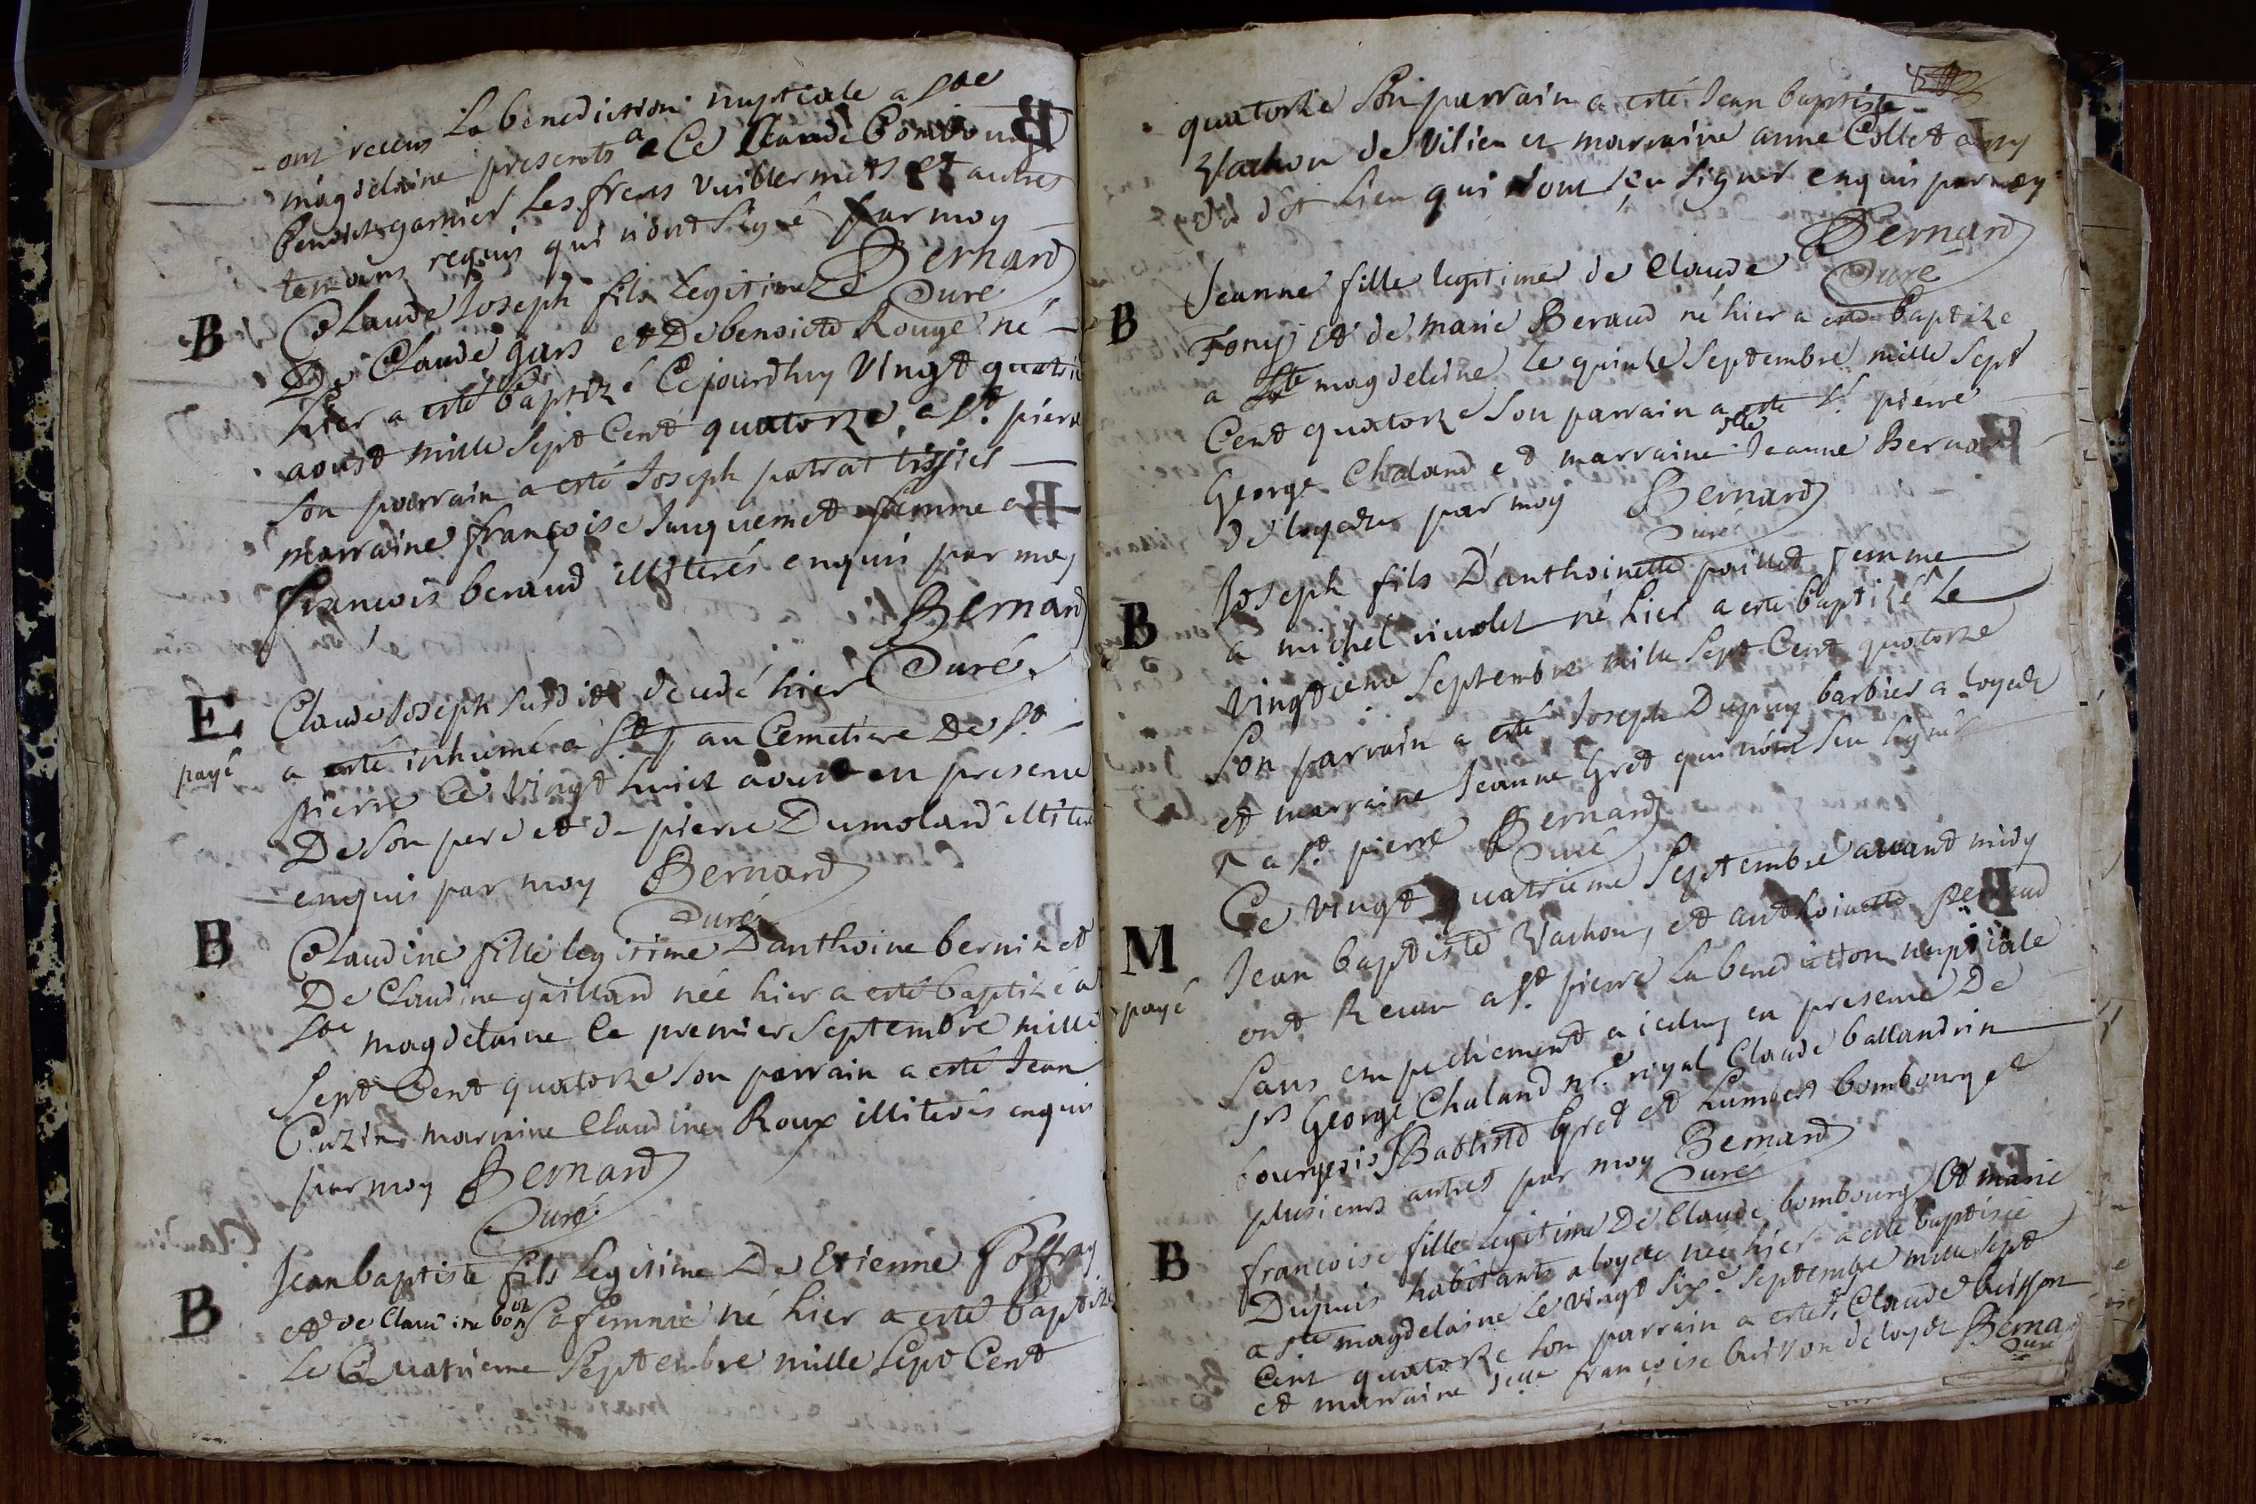 ont receus La benediction nuptiale a Ste
magdelaine presents a Ce Claude Bombourg
benoict garnier Les freres vuillermets et autres
temoins requis qui n'ont signé par moy
Bernard
Curé
B
Claude Joseph fils Legitime
De Claude gurs et De benoicte Rouge né
hier a esté baptizé Cejourdhuy Vingt quatrie
aoust mille Sept Cent quatorze, a St. pierre
Son parrain a esté Joseph patrat tissier
marraine françoise Juquemet femme a
françois beraud illiterés enquis par moy
Bernard
Curé
E
payé
Claude Joseph Susdit decedé hier
a esté inhumé a St p au Cemetiere De St.
pierre Ce Vingt huict aoust en presence
De Son pere et de pierre Dumolard illiterés
enquis par moy Bernard
Curé
B
Claudine fille legitime D'anthoine bernin et
De Claudine gaillard née hier a esté baptizé a
Ste magdelaine Ce premier Septembre mille
Sept Cent quatorze Son parrain a esté Jean
Cuzin marraine Claudine Roux illiterés enquis
par moy Bernard
Curé
B
Jean baptiste fils Legitime De Etienne Poffray
et de Claudine bon Sa femme né hier a esté baptizé
Le Quatrieme Septembre mille Sept Cent
quatorze Son parrain a esté Jean baptiste
Vachon de Vilieu et marraine anne Collet
dudt Lieu qui n'ont Sçu Signer enquis par moy
Bernard
Curé
B
Jeanne fille legitime de Claude
Fong et de marie Beraud né hier a esté baptize
a Ste magdeleine Le quinze Septembre mille Sept
Cent quatorze Son parrain a esté Sr. pierre
George Chaland et marraine delle Jeanne Bernard
de loyette par moy Bernard
Curé
B
Joseph fils D'anthoinette poillet femme
a michel niuolet né hier a esté baptizé Le
Vingtieme Septembre mille Sept Cent quatorze
Son parrain a esté Joseph Dupuy barbier a loyette
et marraine Jeanne Gret qui n'ont Sçu Signer
a St. pierre Bernard
Curé
M
payé
Ce Vingt quatrieme Septembre avant midy
Jean baptiste Vachon, et anthoinette Beraud
ont Receus a St. pierre La benediction nuptiale
Sans empechement a iceluy en presence De
Srs George Chaland nre. royal Claude ballandrin
bourgeois Babtiste Gret et Humbert bombourg et
plusieurs autres par moy Bernard
Curé
B
francoise fille Legitime De Claude bombourg et marie
Dupuis habitants a loyette née hier a esté baptisée
a Ste magdelaine Le vingt Sixe. Septembre mille Sept
Cent quatorze Son parrain a esté Sr Claude buisson
et marraine delle françoise buisson de loyette Bernard
Curé